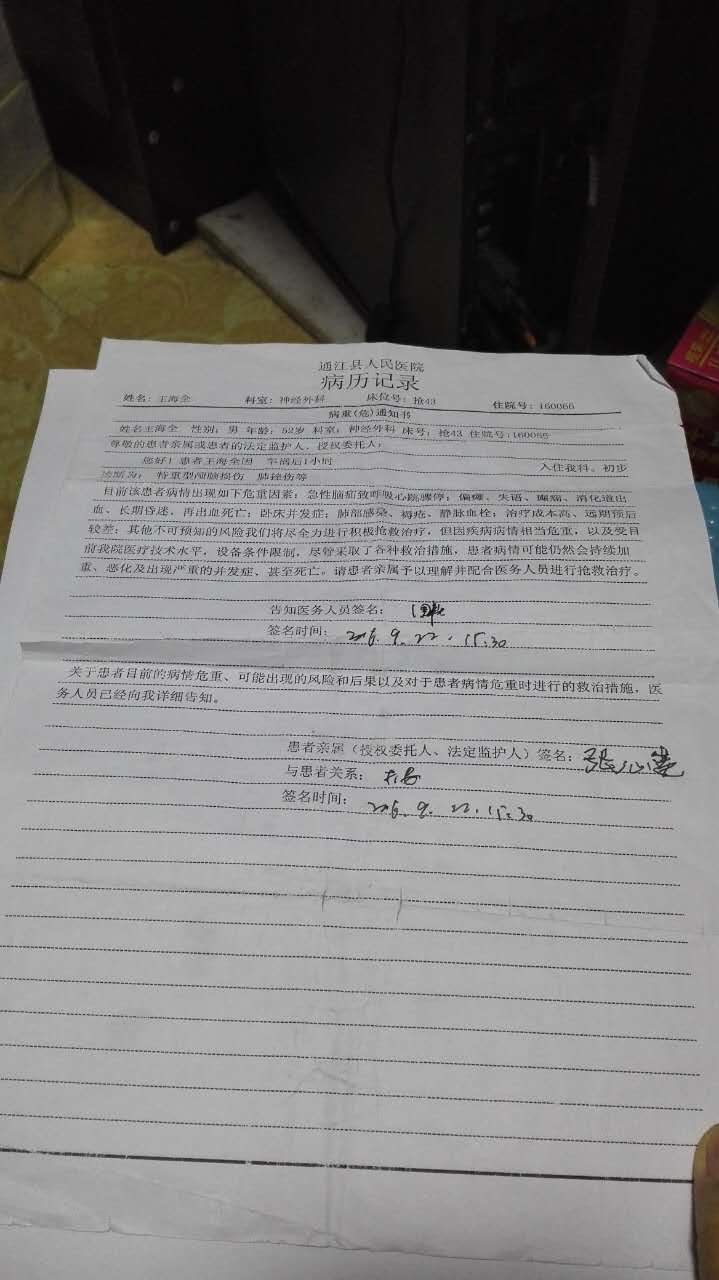 通江县人民医院
病历记录
姓名：王海全 科室：神经外科 床位号：抢43 住院号：160066
病重(危)通知书
姓名王海全 性别：男 年龄：52岁 科室：神经外科 床号：抢43 住院号:160066
尊敬的患者亲属或患者的法定监护人、授权委托人：
您好！患者王海全因 车祸后1小时 入住我科。初步
诊断为： 特重型颅脑损伤 肺挫伤等
目前该患者病情出现如下危重因素：急性脑疝致呼吸心跳骤停；偏瘫、失语、癫痫、消化道出
血、长期昏迷、再出血死亡；卧床并发症：肺部感染、褥疮、静脉血栓；治疗成本高、远期预后
较差；其他不可预知的风险我们将尽全力进行积极抢救治疗，但因疾病病情相当危重，以及受目
前我院医疗技术水平，设备条件限制，尽管采取了各种救治措施，患者病情可能仍然会持续加
重、恶化及出现严重的并发症、甚至死亡。请患者亲属予以理解并配合医务人员进行抢救治疗。
告知医务人员签名：
签名时间： 2016. 9. 22. 15:30
关于患者目前的病情危重、可能出现的风险和后果以及对于患者病情危重时进行的救治措施，医
务人员已经向我详细告知。
患者亲属（授权委托人、法定监护人）签名：
与患者关系：
签名时间： 2016. 9. 22. 15:30